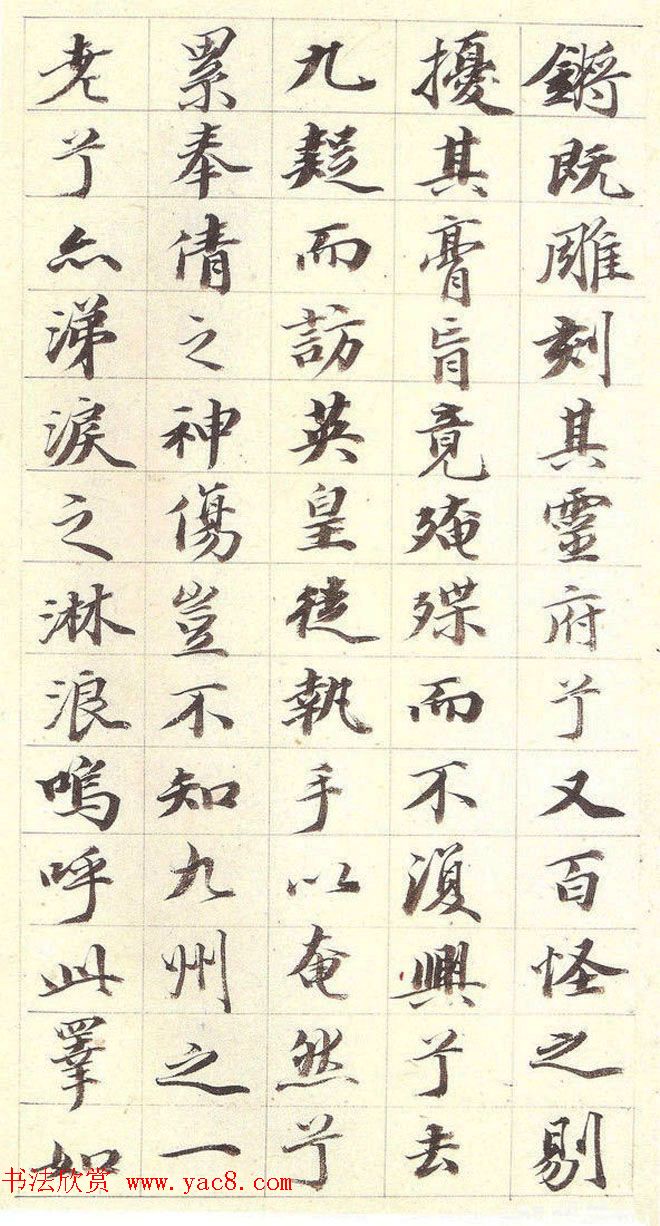 鏘既雕刻其靈府兮又百怪之剔
擾其膏肓竟殗殜而不復興兮去
九疑而訪英皇徒執手以奄然兮
累奉倩之神傷豈不知九州之一
老兮亦涕淚之淋浪嗚呼此睪如
书法欣赏 www.yac8.com